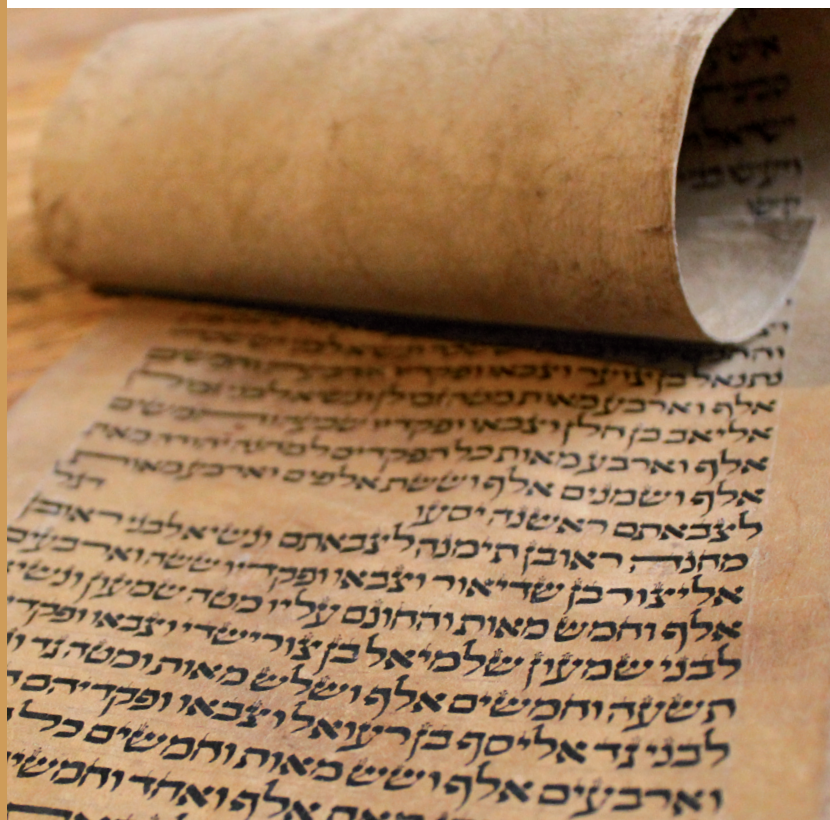 ישראל
נתנאל בן צוער וצבאו ופקדיו ארבעה וחמשים
אלף וארבע מאות מטה זבולן ונשיא לבני זבולן
אליאב בן חלן וצבאו ופקדיו שבעה וחמשים
אלף וארבע מאות כל הפקדים למחנה יהודה מאת
אלף ושמנים אלף וששת אלפים וארבע מאות
לצבאתם ראשנה יסעו דגל
מחנה ראובן תימנה לצבאתם ונשיא לבני ראובן
אליצור בן שדיאור וצבאו ופקדיו ששה וארבעים
אלף וחמש מאות והחונם עליו מטה שמעון ונשיא
לבני שמעון שלמיאל בן צורישדי וצבאו ופקדי
תשעה וחמשים אלף ושלש מאות ומטה גד
לבני גד אליסף בן רעואל וצבאו ופקדיהם
וארבעים אלף ושש מאות וחמשים כל
מאת אלף ואחד וחמשי